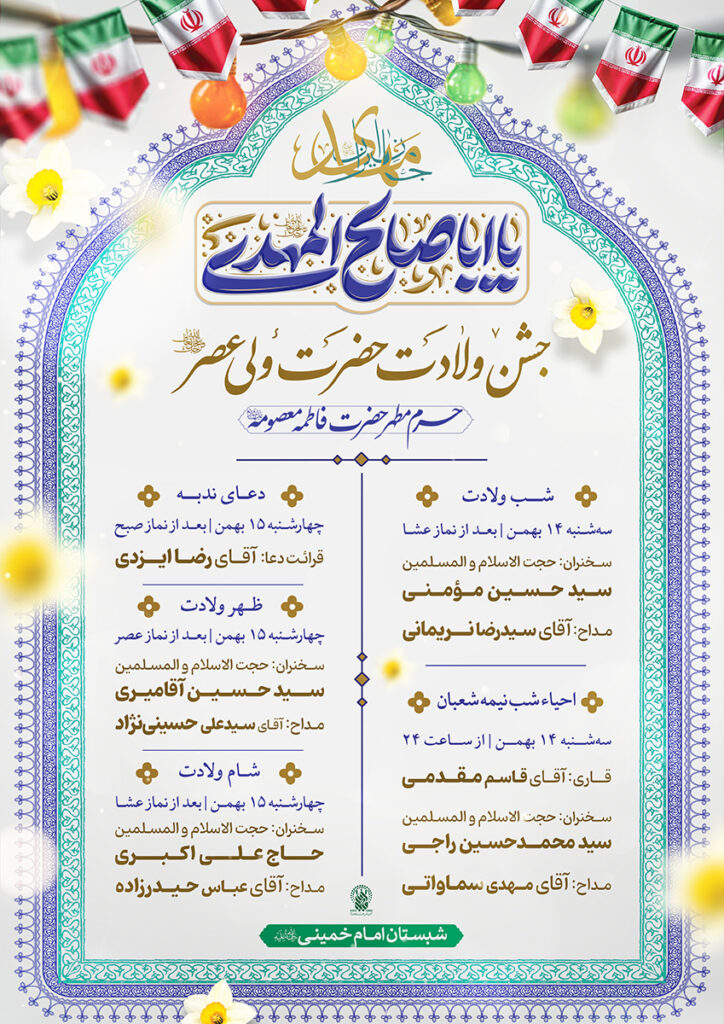 یا اباصالح المهدی
جشن ولادت حضرت ولی عصر
حرم مطهر حضرت فاطمه معصومه
شب ولادت
سه‌شنبه ۱۴ بهمن | بعد از نماز عشا
سخنران: حجت الاسلام و المسلمین
سید حسین مؤمنی
مداح: آقای سیدرضا نریمانی
احیاء شب نیمه شعبان
سه‌شنبه ۱۴ بهمن | از ساعت ۲۴
قاری: آقای قاسم مقدمی
سخنران: حجت الاسلام و المسلمین
سید محمدحسین راجی
مداح: آقای مهدی سماواتی
دعای ندبه
چهارشنبه ۱۵ بهمن | بعد از نماز صبح
قرائت دعا: آقای رضا ایزدی
ظهر ولادت
چهارشنبه ۱۵ بهمن | بعد از نماز عصر
سخنران: حجت الاسلام و المسلمین
سید حسین آقامیری
مداح: آقای سیدعلی حسینی‌نژاد
شام ولادت
چهارشنبه ۱۵ بهمن | بعد از نماز عشا
سخنران: حجت الاسلام و المسلمین
حاج علی اکبری
مداح: آقای عباس حیدرزاده
شبستان امام خمینی